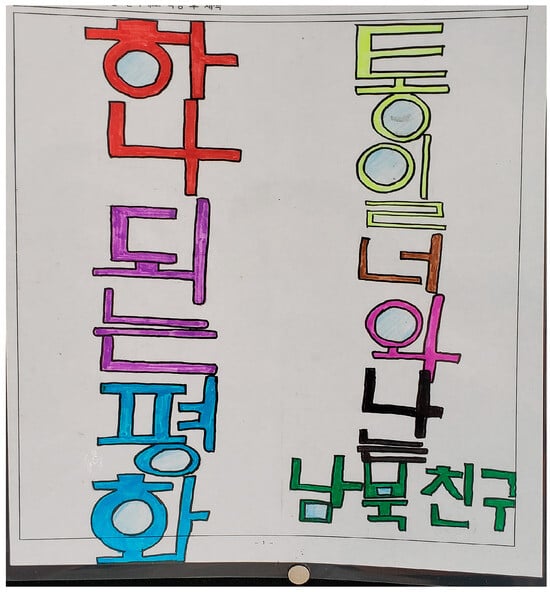 하나 되는 평화
통일 너와 나는
남북친구
- 1 -